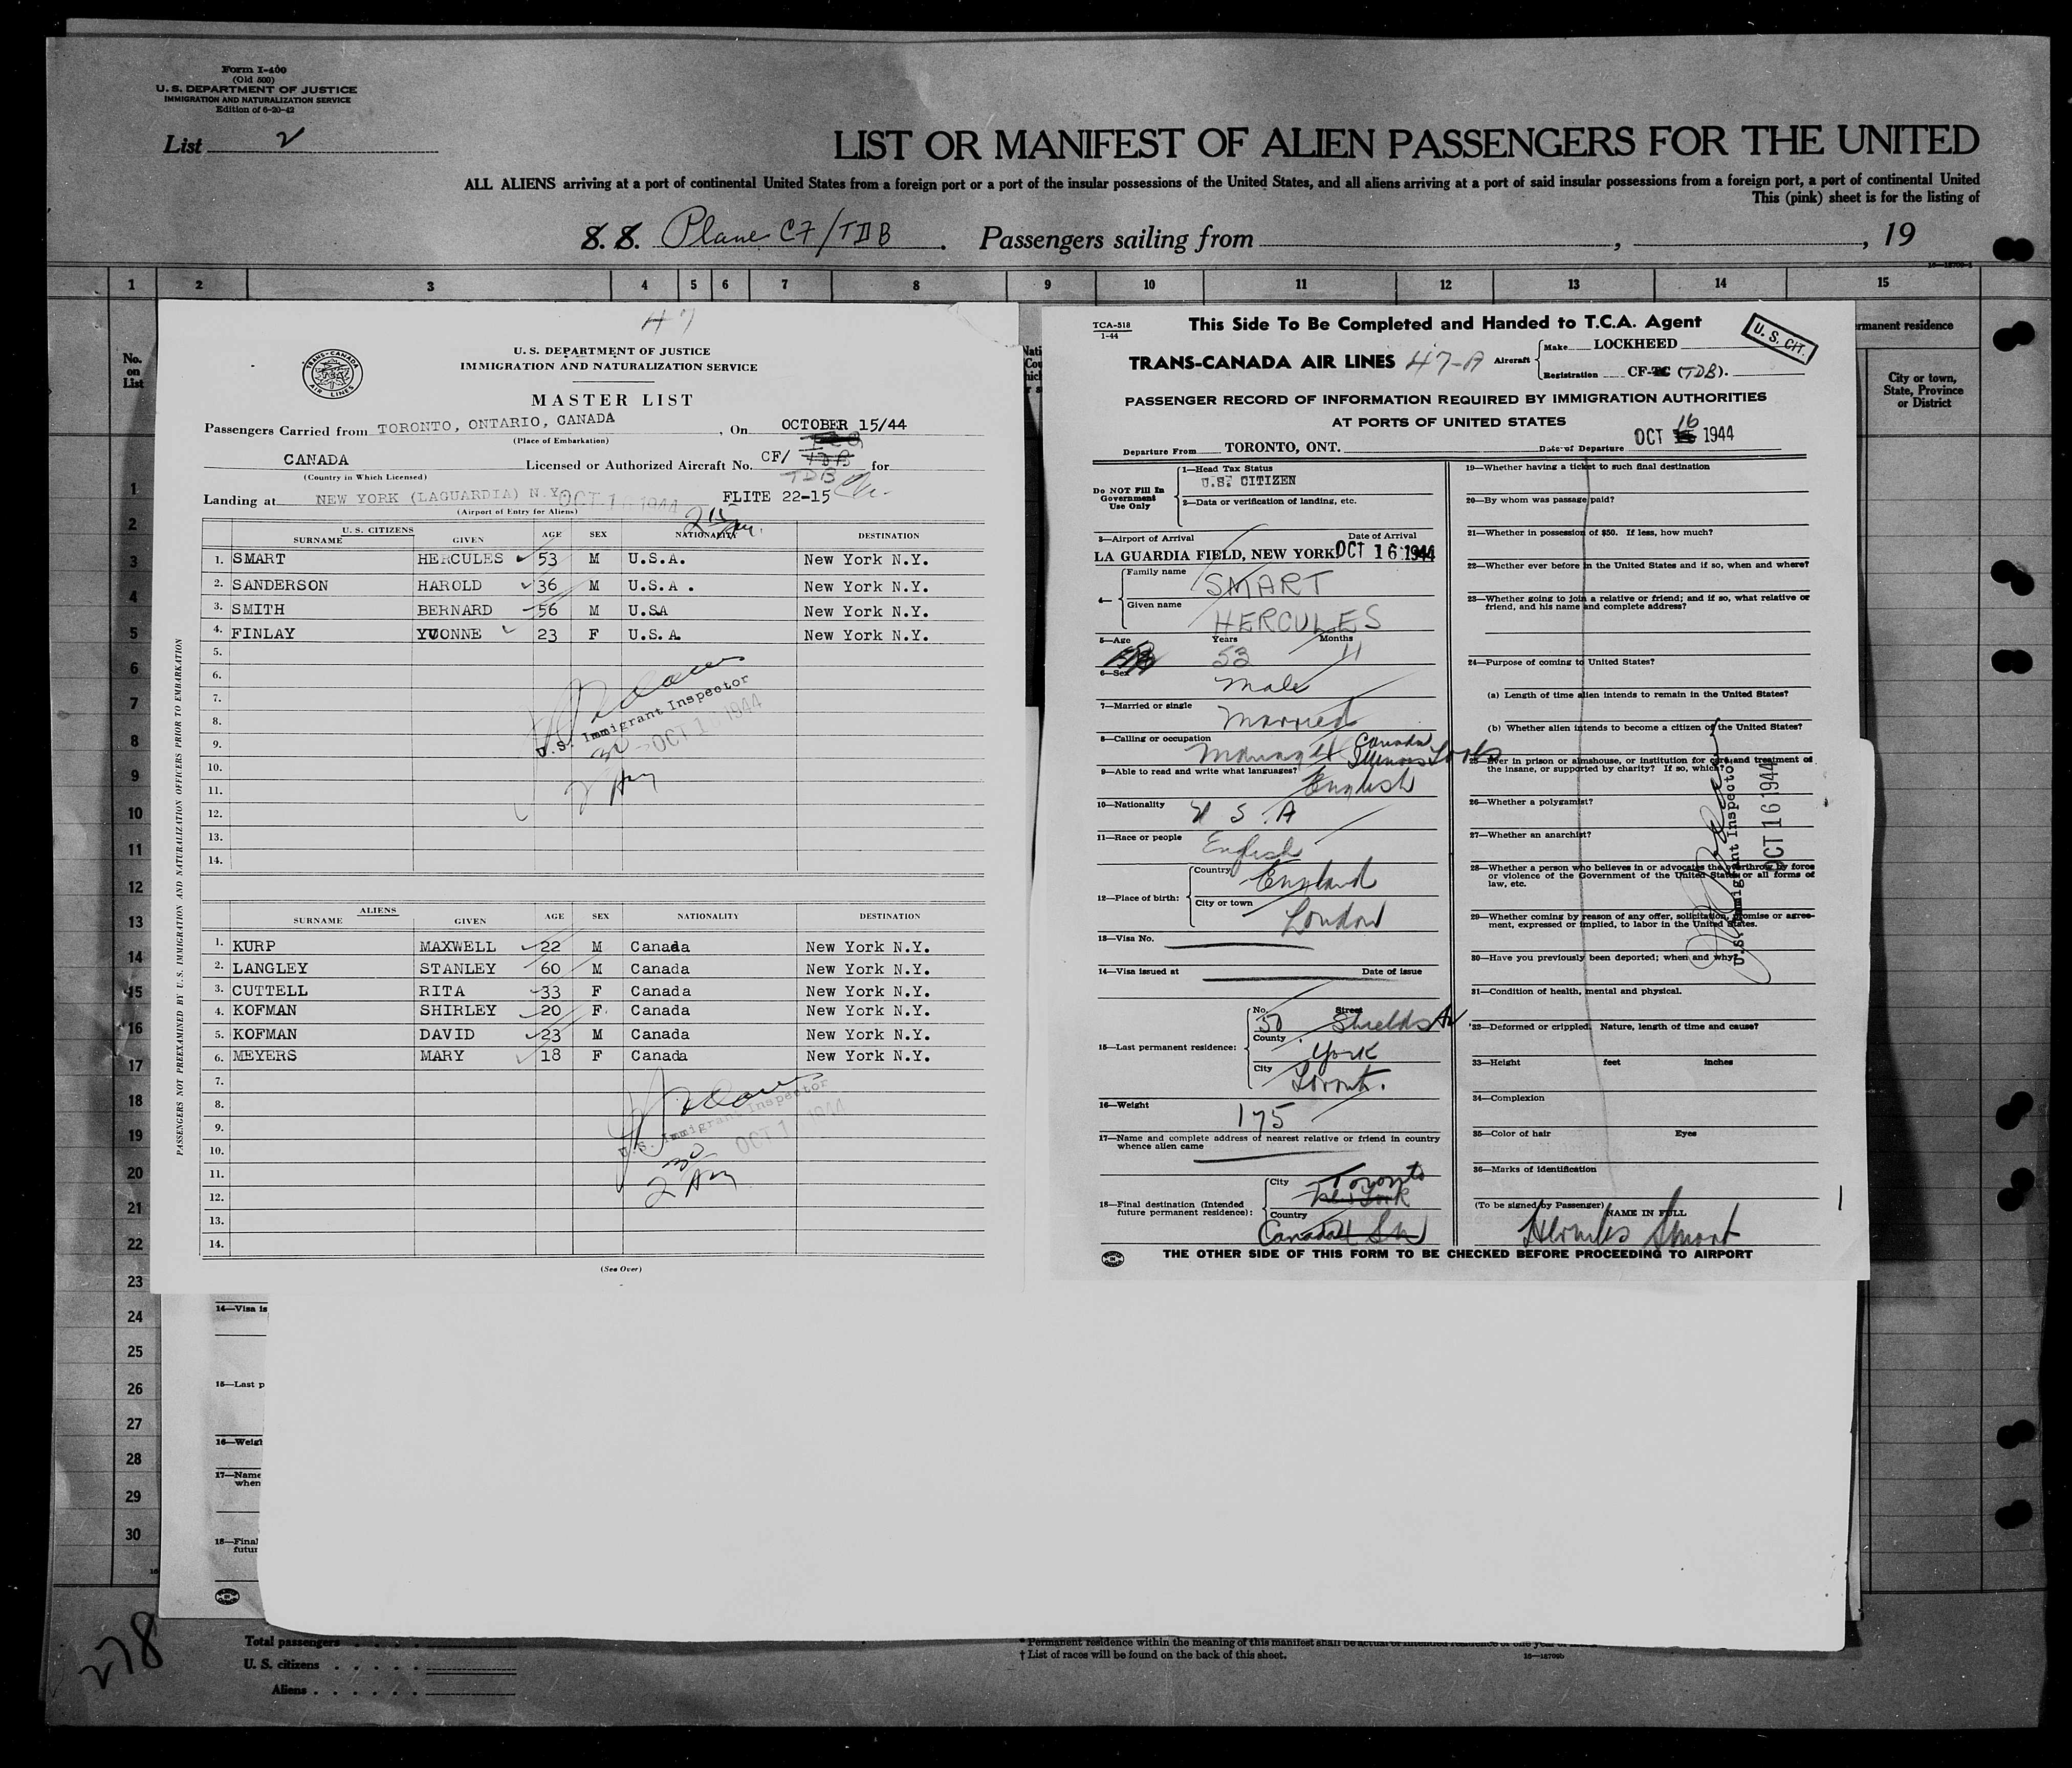 Form I-400
(Old 500)
U. S. DEPARTMENT OF JUSTICE
IMMIGRATION AND NATURALIZATION SERVICE
Edition of 6-20-42
List 2
LIST OR MANIFEST OF ALIEN PASSENGERS FOR THE UNITED
ALL ALIENS arriving at a port of continental United States from a foreign port or a port of the insular possessions of the United States, and all aliens arriving at a port of said insular possessions from a foreign port, a port of continental United
This (pink) sheet is for the listing of
S. S. Plane CF/TDB . Passengers sailing from , , 19
1 2 3 4 5 6 7 8 9 10 11 12 13 14 15
No. on List
rmanent residence
City or town, State, Province or District
1
2
3
4
5
6
7
8
9
10
11
12
13
14
15
16
17
18
19
20
21
22
23
24
25
26
27
28
29
30
47
TRANS-CANADA AIR LINES
U. S. DEPARTMENT OF JUSTICE
IMMIGRATION AND NATURALIZATION SERVICE
MASTER LIST
Passengers Carried from TORONTO, ONTARIO, CANADA , On OCTOBER 15/44
(Place of Embarkation)
CANADA Licensed or Authorized Aircraft No. CF/ TDB for
(Country in Which Licensed)
TDB
Landing at NEW YORK (LAGUARDIA) N.Y. OCT 16 1944 FLITE 22-15
(Airport of Entry for Aliens)
U. S. CITIZENS
SURNAME GIVEN AGE SEX NATIONALITY DESTINATION
1. SMART HERCULES 53 M U.S.A. New York N.Y.
2. SANDERSON HAROLD 36 M U.S.A . New York N.Y.
3. SMITH BERNARD 56 M U.SA New York N.Y.
4. FINLAY YVONNE 23 F U.S.A. New York N.Y.
5.
6.
7.
8.
9.
10.
11.
12.
13.
14.
U.S. Immigrant Inspector
OCT 1 1944
2 30 AM
ALIENS
SURNAME GIVEN AGE SEX NATIONALITY DESTINATION
1. KURP MAXWELL 22 M Canada New York N.Y.
2. LANGLEY STANLEY 60 M Canada New York N.Y.
3. CUTTELL RITA 33 F Canada New York N.Y.
4. KOFMAN SHIRLEY 20 F. Canada New York N.Y.
5. KOFMAN DAVID 23 M Canada New York N.Y.
6. MEYERS MARY 18 F Canada New York N.Y.
7.
8.
9.
10.
11.
12.
13.
14.
U.S. Immigrant Inspector
OCT 1 1944
2 30 AM
(See Over)
PASSENGERS NOT PREEXAMINED BY U. S. IMMIGRATION AND NATURALIZATION OFFICERS PRIOR TO EMBARKATION
TCA-518
1-44
This Side To Be Completed and Handed to T.C.A. Agent
U. S. CIT.
TRANS-CANADA AIR LINES 47-A Aircraft
Make LOCKHEED
Registration CF-TC (TDB).
PASSENGER RECORD OF INFORMATION REQUIRED BY IMMIGRATION AUTHORITIES
AT PORTS OF UNITED STATES
Departure From TORONTO, ONT. Date of Departure OCT 16 1944
Do NOT Fill In Government Use Only
1—Head Tax Status
U.S. CITIZEN
2—Data or verification of landing, etc.
3—Airport of Arrival Date of Arrival
LA GUARDIA FIELD, NEW YORK OCT 16 1944
4— Family name SMART
Given name HERCULES
5—Age Years 53 Months 11
6—Sex Male
7—Married or single Married
8—Calling or occupation Canada
9—Able to read and write what languages? English
10—Nationality U S A
11—Race or people English
12—Place of birth: Country England
City or town London
13—Visa No.
14—Visa issued at Date of issue
15—Last permanent residence: No. 50 Street Shields Av
County York
City Toronto.
16—Weight 175
17—Name and complete address of nearest relative or friend in country
whence alien came
18—Final destination (Intended future permanent residence): City Toronto New York
Country Canada
19—Whether having a ticket to such final destination
20—By whom was passage paid?
21—Whether in possession of $50. If less, how much?
22—Whether ever before in the United States and if so, when and where?
23—Whether going to join a relative or friend; and if so, what relative or
friend, and his name and complete address?
24—Purpose of coming to United States?
(a) Length of time alien intends to remain in the United States?
(b) Whether alien intends to become a citizen of the United States?
25—Ever in prison or almshouse, or institution for care and treatment of
the insane, or supported by charity? If so, which?
26—Whether a polygamist?
27—Whether an anarchist?
28—Whether a person who believes in or advocates the overthrow by force
or violence of the Government of the United States or all forms of
law, etc.
29—Whether coming by reason of any offer, solicitation, promise or agree-
ment, expressed or implied, to labor in the United States.
30—Have you previously been deported; when and why?
31—Condition of health, mental and physical.
32—Deformed or crippled. Nature, length of time and cause?
33—Height feet inches
34—Complexion
35—Color of hair Eyes
36—Marks of identification
(To be signed by Passenger) NAME IN FULL
Hercules Smart
U.S. Immigrant Inspector
OCT 16 1944
THE OTHER SIDE OF THIS FORM TO BE CHECKED BEFORE PROCEEDING TO AIRPORT
14—Visa is
15—Last p
16—Weigh
17—Name
when
18—Final
futur
278
Total passengers
U. S. citizens
Aliens
* Permanent residence within the meaning of this manifest shall be actual or intended residence of one year or
† List of races will be found on the back of this sheet.